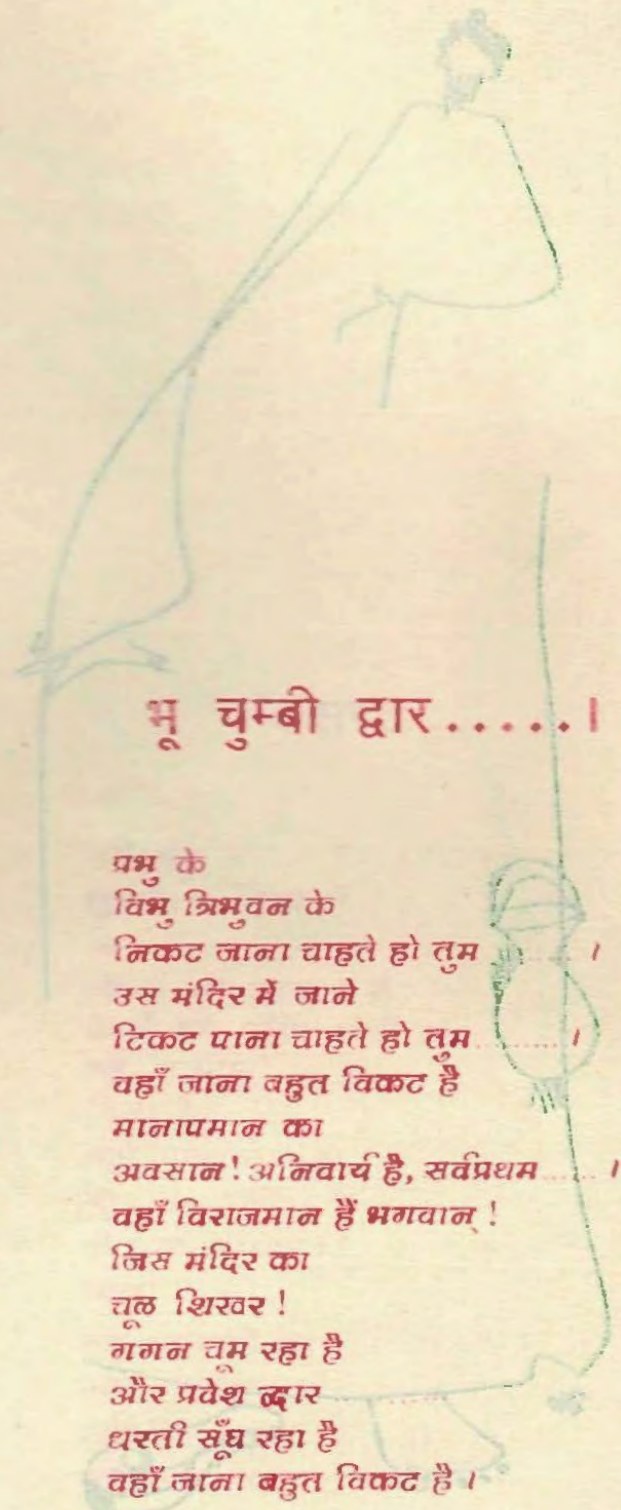 भू चुम्बी द्वार.....।
प्रभु के
विभु त्रिभुवन के
निकट जाना चाहते हो तुम .........।
उस मंदिर में जाने
टिकट पाना चाहते हो तुम .........।
वहाँ जाना बहुत विकट है
मानापमान का
अवसान! अनिवार्य है, सर्वप्रथम......।
वहाँ विराजमान हैं भगवान् !
जिस मंदिर का
चूळ शिखर !
गगन चूम रहा है
और प्रवेश द्वार ............
धरती सूँघ रहा है
वहाँ जाना बहुत विकट है।